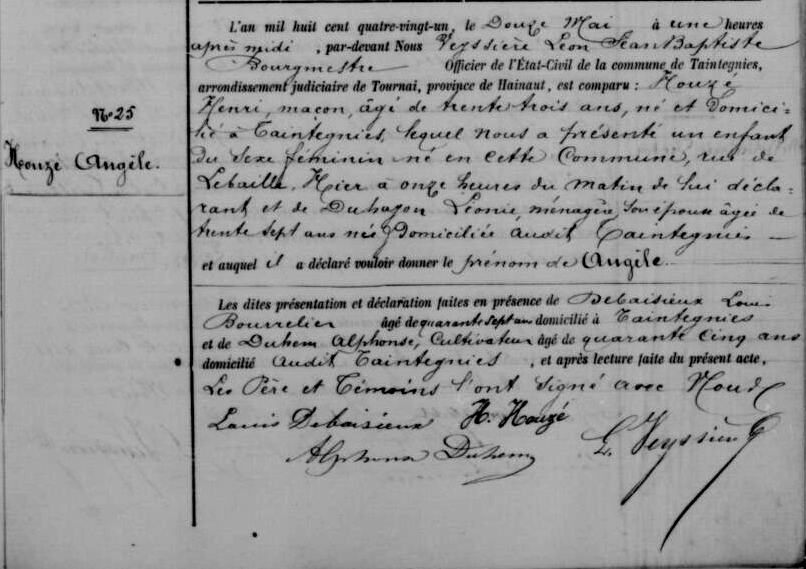 L'an mil huit cent quatre-vingt-un, le Douze Mai à une heures
après midi, par-devant Nous Veyssière Léon Jean Baptiste
Bourgmestre Officier de l'État-Civil de la commune de Taintegnies,
arrondissement judiciaire de Tournai, province de Hainaut, est comparu : Houzé
N° 25
Henri, maçon, âgé de trente trois ans, né et Domici-
lié à Taintegnies, lequel nous a présenté un enfant
Houzé Angèle.
Du Sexe féminin né en cette Commune, rue de
Lebaille, Hier à onze heures du matin de lui décla-
rant et de Duhazon Léonie, ménagère son épouse âgée de
trente sept ans nés & Domiciliée audit Taintegnies —
et auquel il a déclaré vouloir donner le prénom de Angèle.
Les dites présentation et déclaration faites en présence de Debaisieux Louis
Bourrelier âgé de quarante sept ans domicilié à Taintegnies
et de Duhem Alphonse, Cultivateur âgé de quarante cinq ans
domicilié audit Taintegnies, et après lecture faite du présent acte,
Les Père et Témoins l'ont signé avec Nous
Louis Debaisieux H. Houzé
Alphonse Duhem L. Veyssière